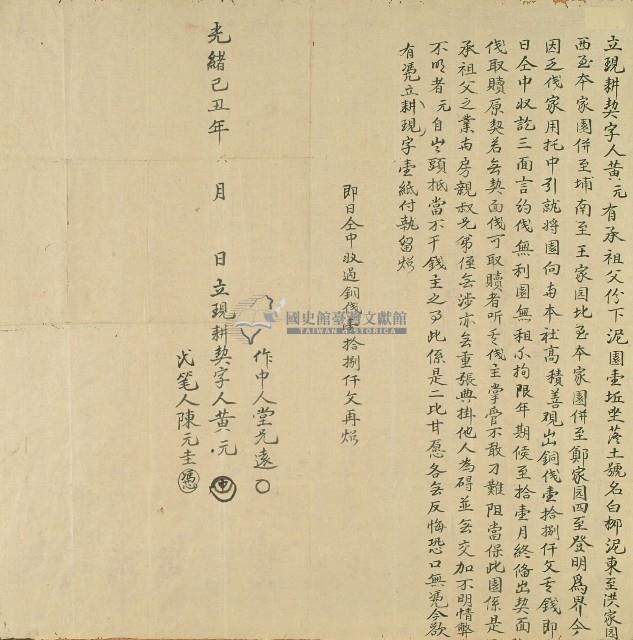 立現耕契字人黃元有承祖父份下泥園壹坵坐落土號名白柳泥東至洪家園
西至本家園併至埔南至王家园北至本家園併至鄭家园四至登明爲界今
因乏伐家用托中引就將園向與本社高積善現出銅伐壹拾捌仟文其錢即
日仝中收訖三面言約伐無利園無租不拘限年期侯至拾壹月終備出契面
伐取贖原契若無契面伐可取贖者听其伐主掌管不敢刁難阻當保此園係是
承祖父之業與房親叔兄弟侄無涉亦無重張典掛他人為碍並無交加不明情弊
不明者元自出頭抵當不干錢主之事此係是二比甘愿各無反悔恐口無憑今欲
有憑立耕現字壹紙付執留炤
即日仝中收過銅伐壹拾捌仟文再炤
作中人堂兄遠
光緒己丑年 月 日立現耕契字人黃元
代笔人陳元圭
憑
國史館臺灣文獻館
TAIWAN HISTORICA